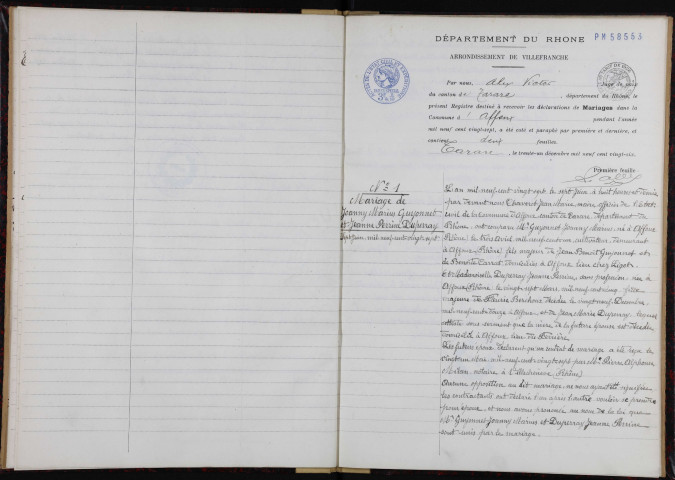 DÉPARTEMENT DU RHONE
PM58553
ARRONDISSEMENT DE VILLEFRANCHE
Par nous, Alix Victor Juge de paix
du canton de Tarare, département du Rhône, le
présent Registre destiné à recevoir les déclarations de Mariages dans la
Commune d'Affoux pendant l'année
mil neuf cent vingt-sept, a été coté et paraphé par première et dernière, et
contient deux feuilles.
Tarare, le trente-un décembre mil neuf cent vingt-six.
Première feuille
N° 1
Mariage de
Joanny Marius Guyonnet
et Jeanne Perrine Duperray
Sept Juin, mil neuf cent vingt sept
L'an mil neuf cent vingt sept, le sept Juin, à huit heures et demie,
par devant nous Chavant Jean Marie, maire officier de l'état
civil de la commune d'Affoux, canton de Tarare, département du
Rhône, ont comparu Mr Guyonnet Joanny Marius, né à Affoux
(Rhône) le trois avril, mil neuf cent un, cultivateur, demeurant
à Affoux (Rhône) fils majeur de Jean Benoit Guyonnet et
de Benoite Carrat domiciliés à Affoux, lieu chez
Et Mademoiselle Duperray Jeanne Perrine, sans profession, née à
Affoux, Rhône, le vingt sept Mars, mil neuf cent cinq, fille
majeure de Fleurie Berchoux décédée le vingt neuf Décembre,
mil neuf cent à Affoux, et de Jean Marie Duperray, lequel
atteste sous serment que la mère de la future épouse est décédée
domicilié à Affoux, lieu de
Les futurs époux déclarent qu'un contrat de mariage a été reçu le
vingt un Mai, mil neuf cent vingt sept par Me Pierre Alphonse
notaire à Villechenève (Rhône)
Aucune opposition au dit mariage ne nous ayant été signifiée,
les contractants ont déclaré l'un après l'autre, vouloir se prendre
pour époux et nous avons prononcé au nom de la loi que
Mr Guyonnet Joanny Marius et Duperray Jeanne Perrine
sont unis par le mariage.